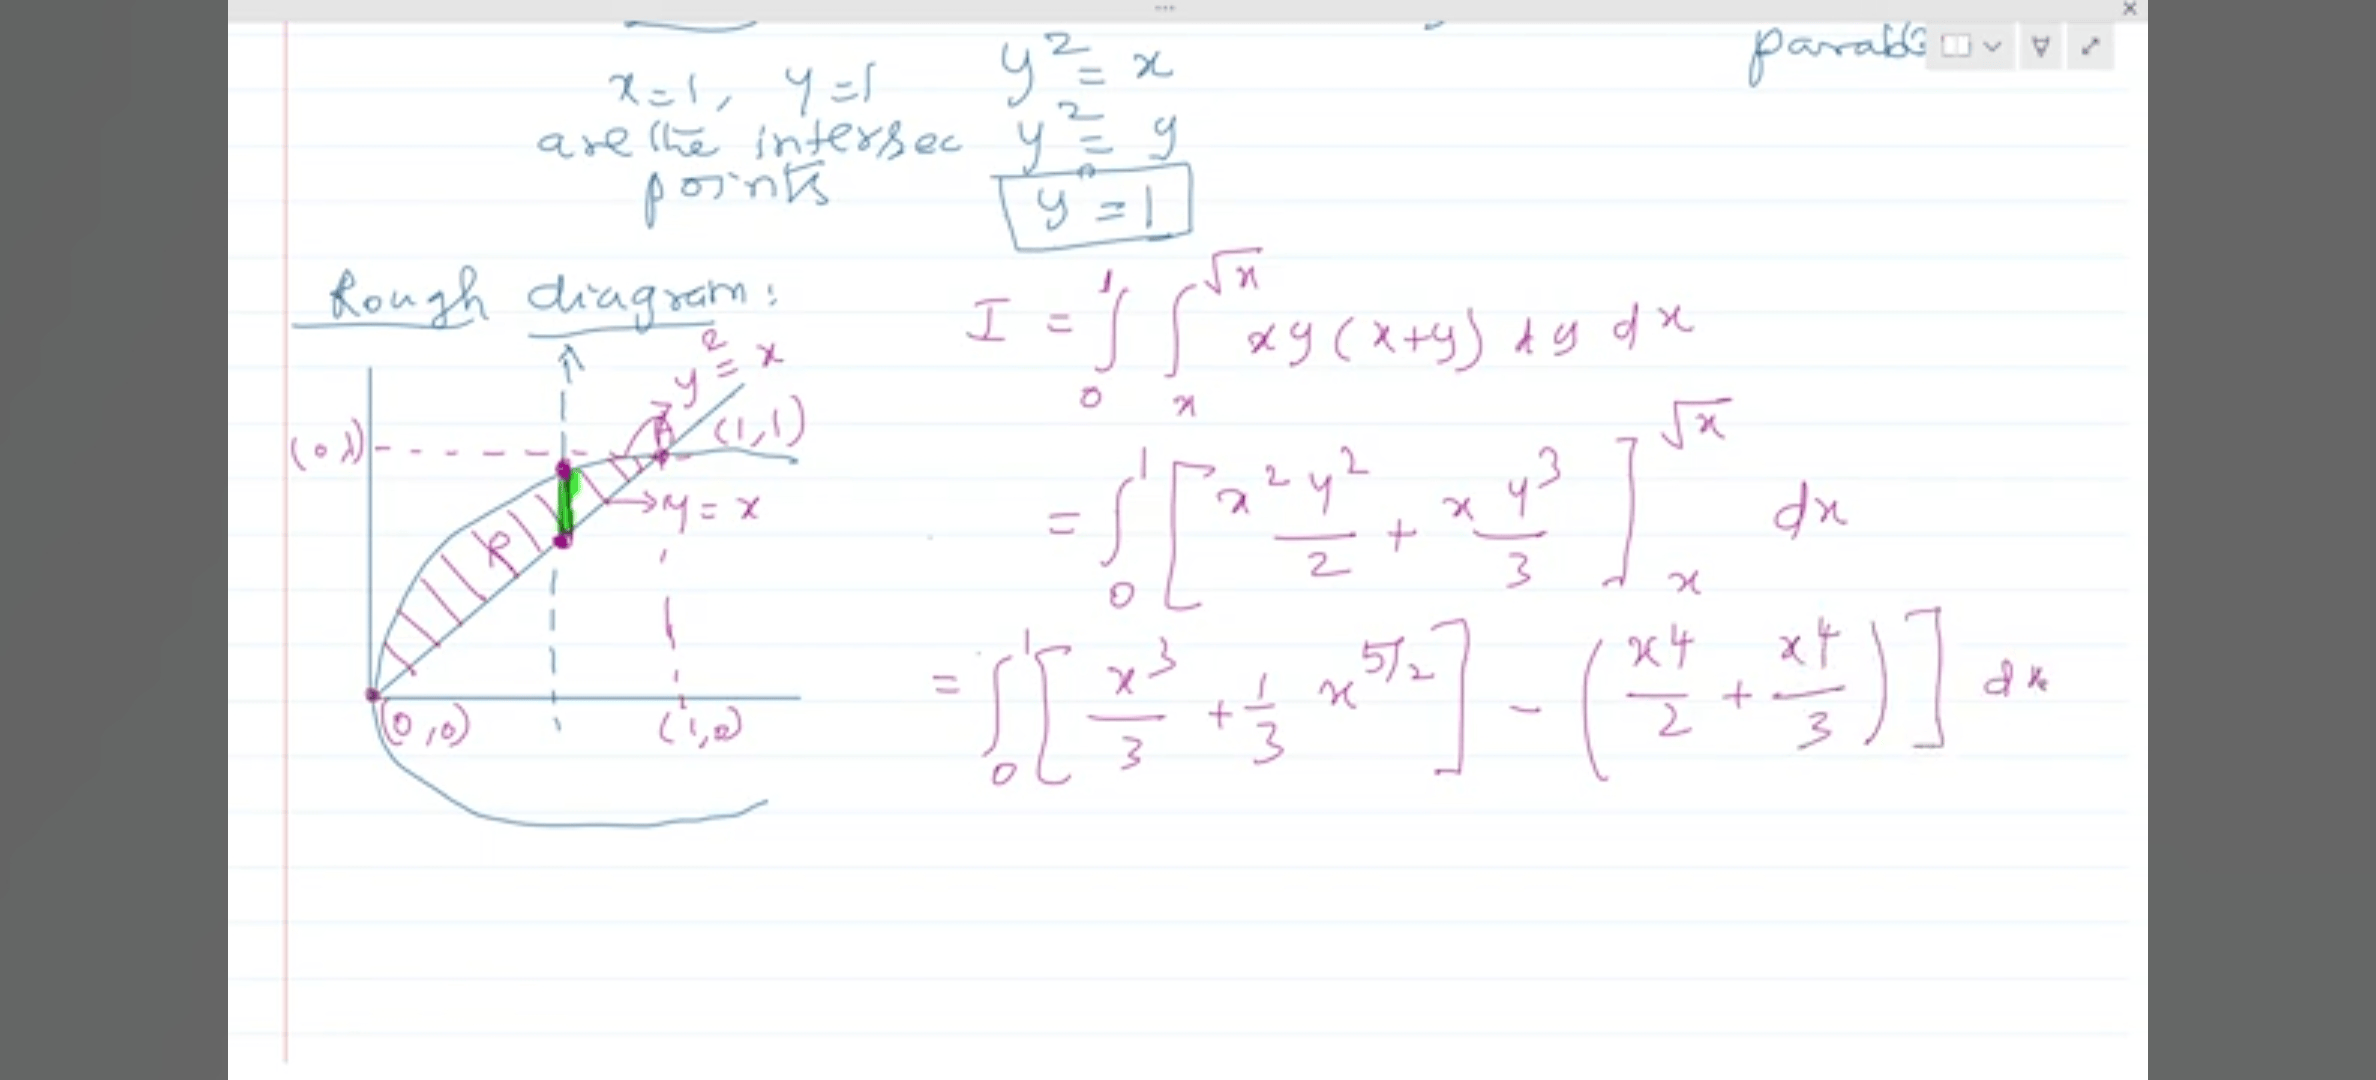 parab
x=1, y=1
are the intersec
points
y² = x
y² = y
y = 1
Rough diagram:
y² = x
(1,1)
y = x
(0,0)
(1,0)
I = ∫₀¹ ∫ₓ^√x xy(x+y) dy dx
= ∫₀¹ [x² y²/2 + x y³/3]ₓ^√x dx
= ∫₀¹ [x³/3 + 1/3 x^5/2] - (x⁴/2 + x⁴/3)] dx